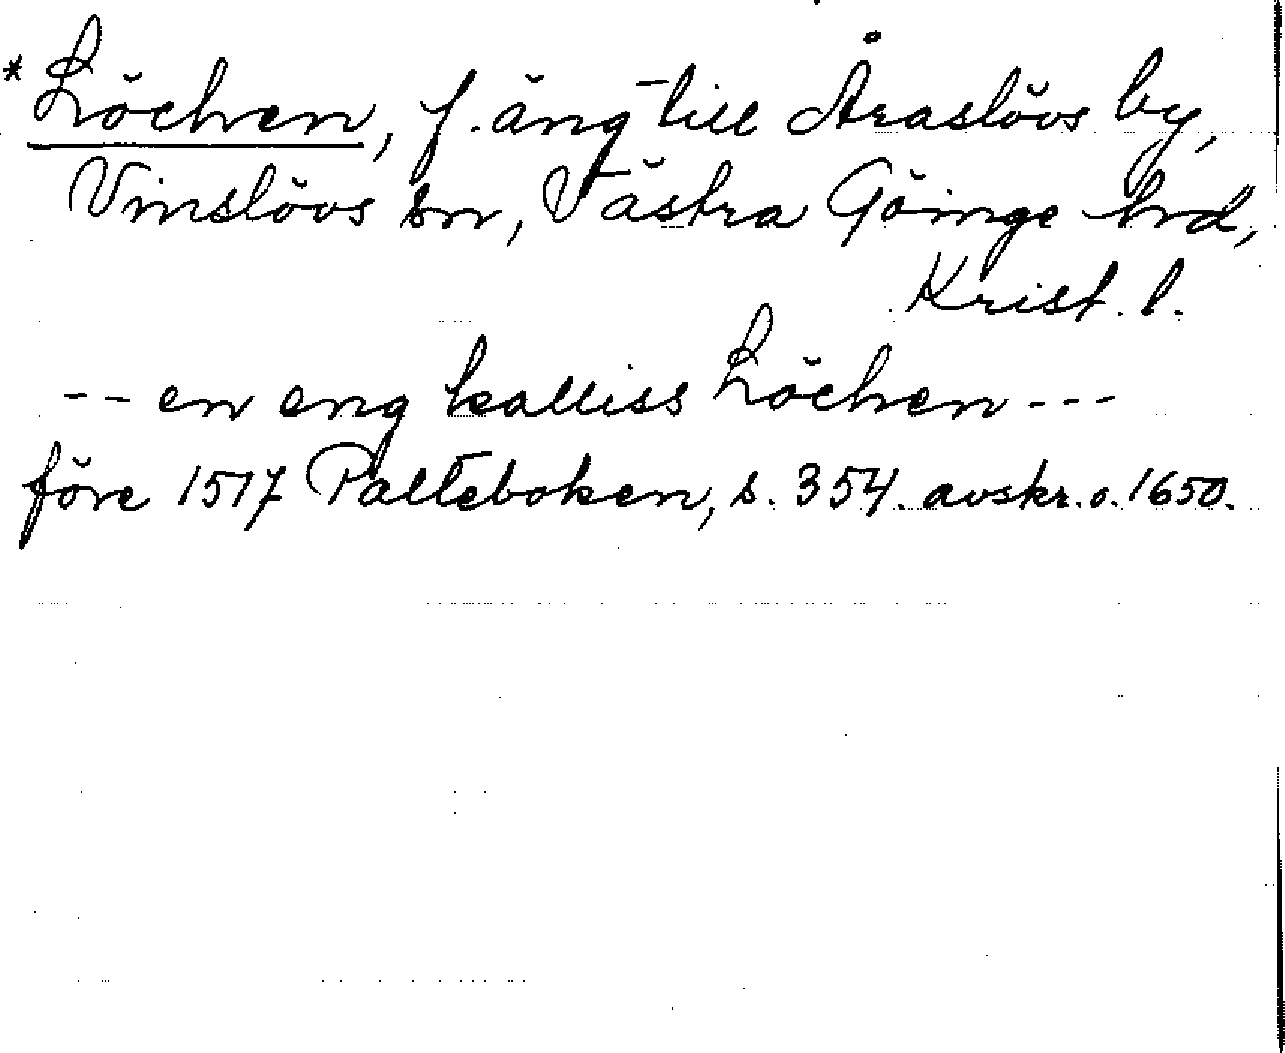 *Löchen, f. äng till Åraslövs by,
Vinslövs sn, Västra Göinge hrd,
Krist. l.
-- en eng kalliss Löchen ---
före 1517 Palteboken, s. 354. avskr. o. 1650.